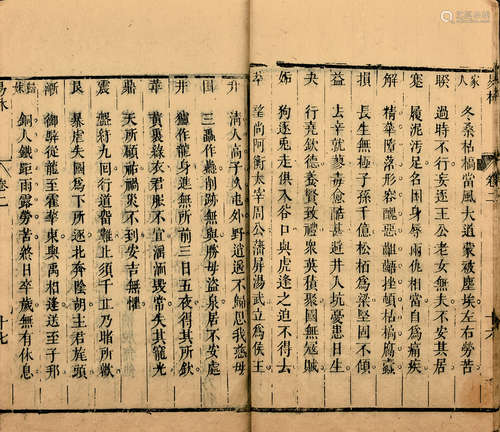 易林
卷二
十六
家人 冬桑枯槁當風大道蒙被塵埃左右勞苦
睽 過時不行妄逐王公老女無夫不安其居
蹇 履泥污足名困身辱兩仇相當自為痛疾
解 精華墮落形容醜惡齟齬挫頓枯槁腐蠹
損 長生無極子孫千億松栢為梁堅固不傾
益 去辛就蓼毒愈酷甚避井入坑憂患日生
夬 行堯欽德養賢致禮衆英積聚國無寇賊
姤 狗逐兎走俱入谷口與虎逢之迫不得去
萃 望尚阿衡太宰周公藩屏湯武立為侯王
升 清人高子久屯外野逍遙不歸思我慈母
困 三蟲作蠱削跡無與勝母盜泉居不安處
井 獨作龍身進無所前三日五夜得其所欽
革 黃裏綠衣君服不宜淫湎毀常失其寵光
鼎 天所顧祐禍災不到安吉無懼
震 螫紉九囘行道留難止須千丘乃睹所歡
艮 暴虐失國為下所逐北奔陰胡主君旄頭
漸 御騂從龍至霍華東與禹相逢送至子邦
歸妹 銅人鐵距雨露勞苦終日卒歲無有休息
易林
卷二
十七